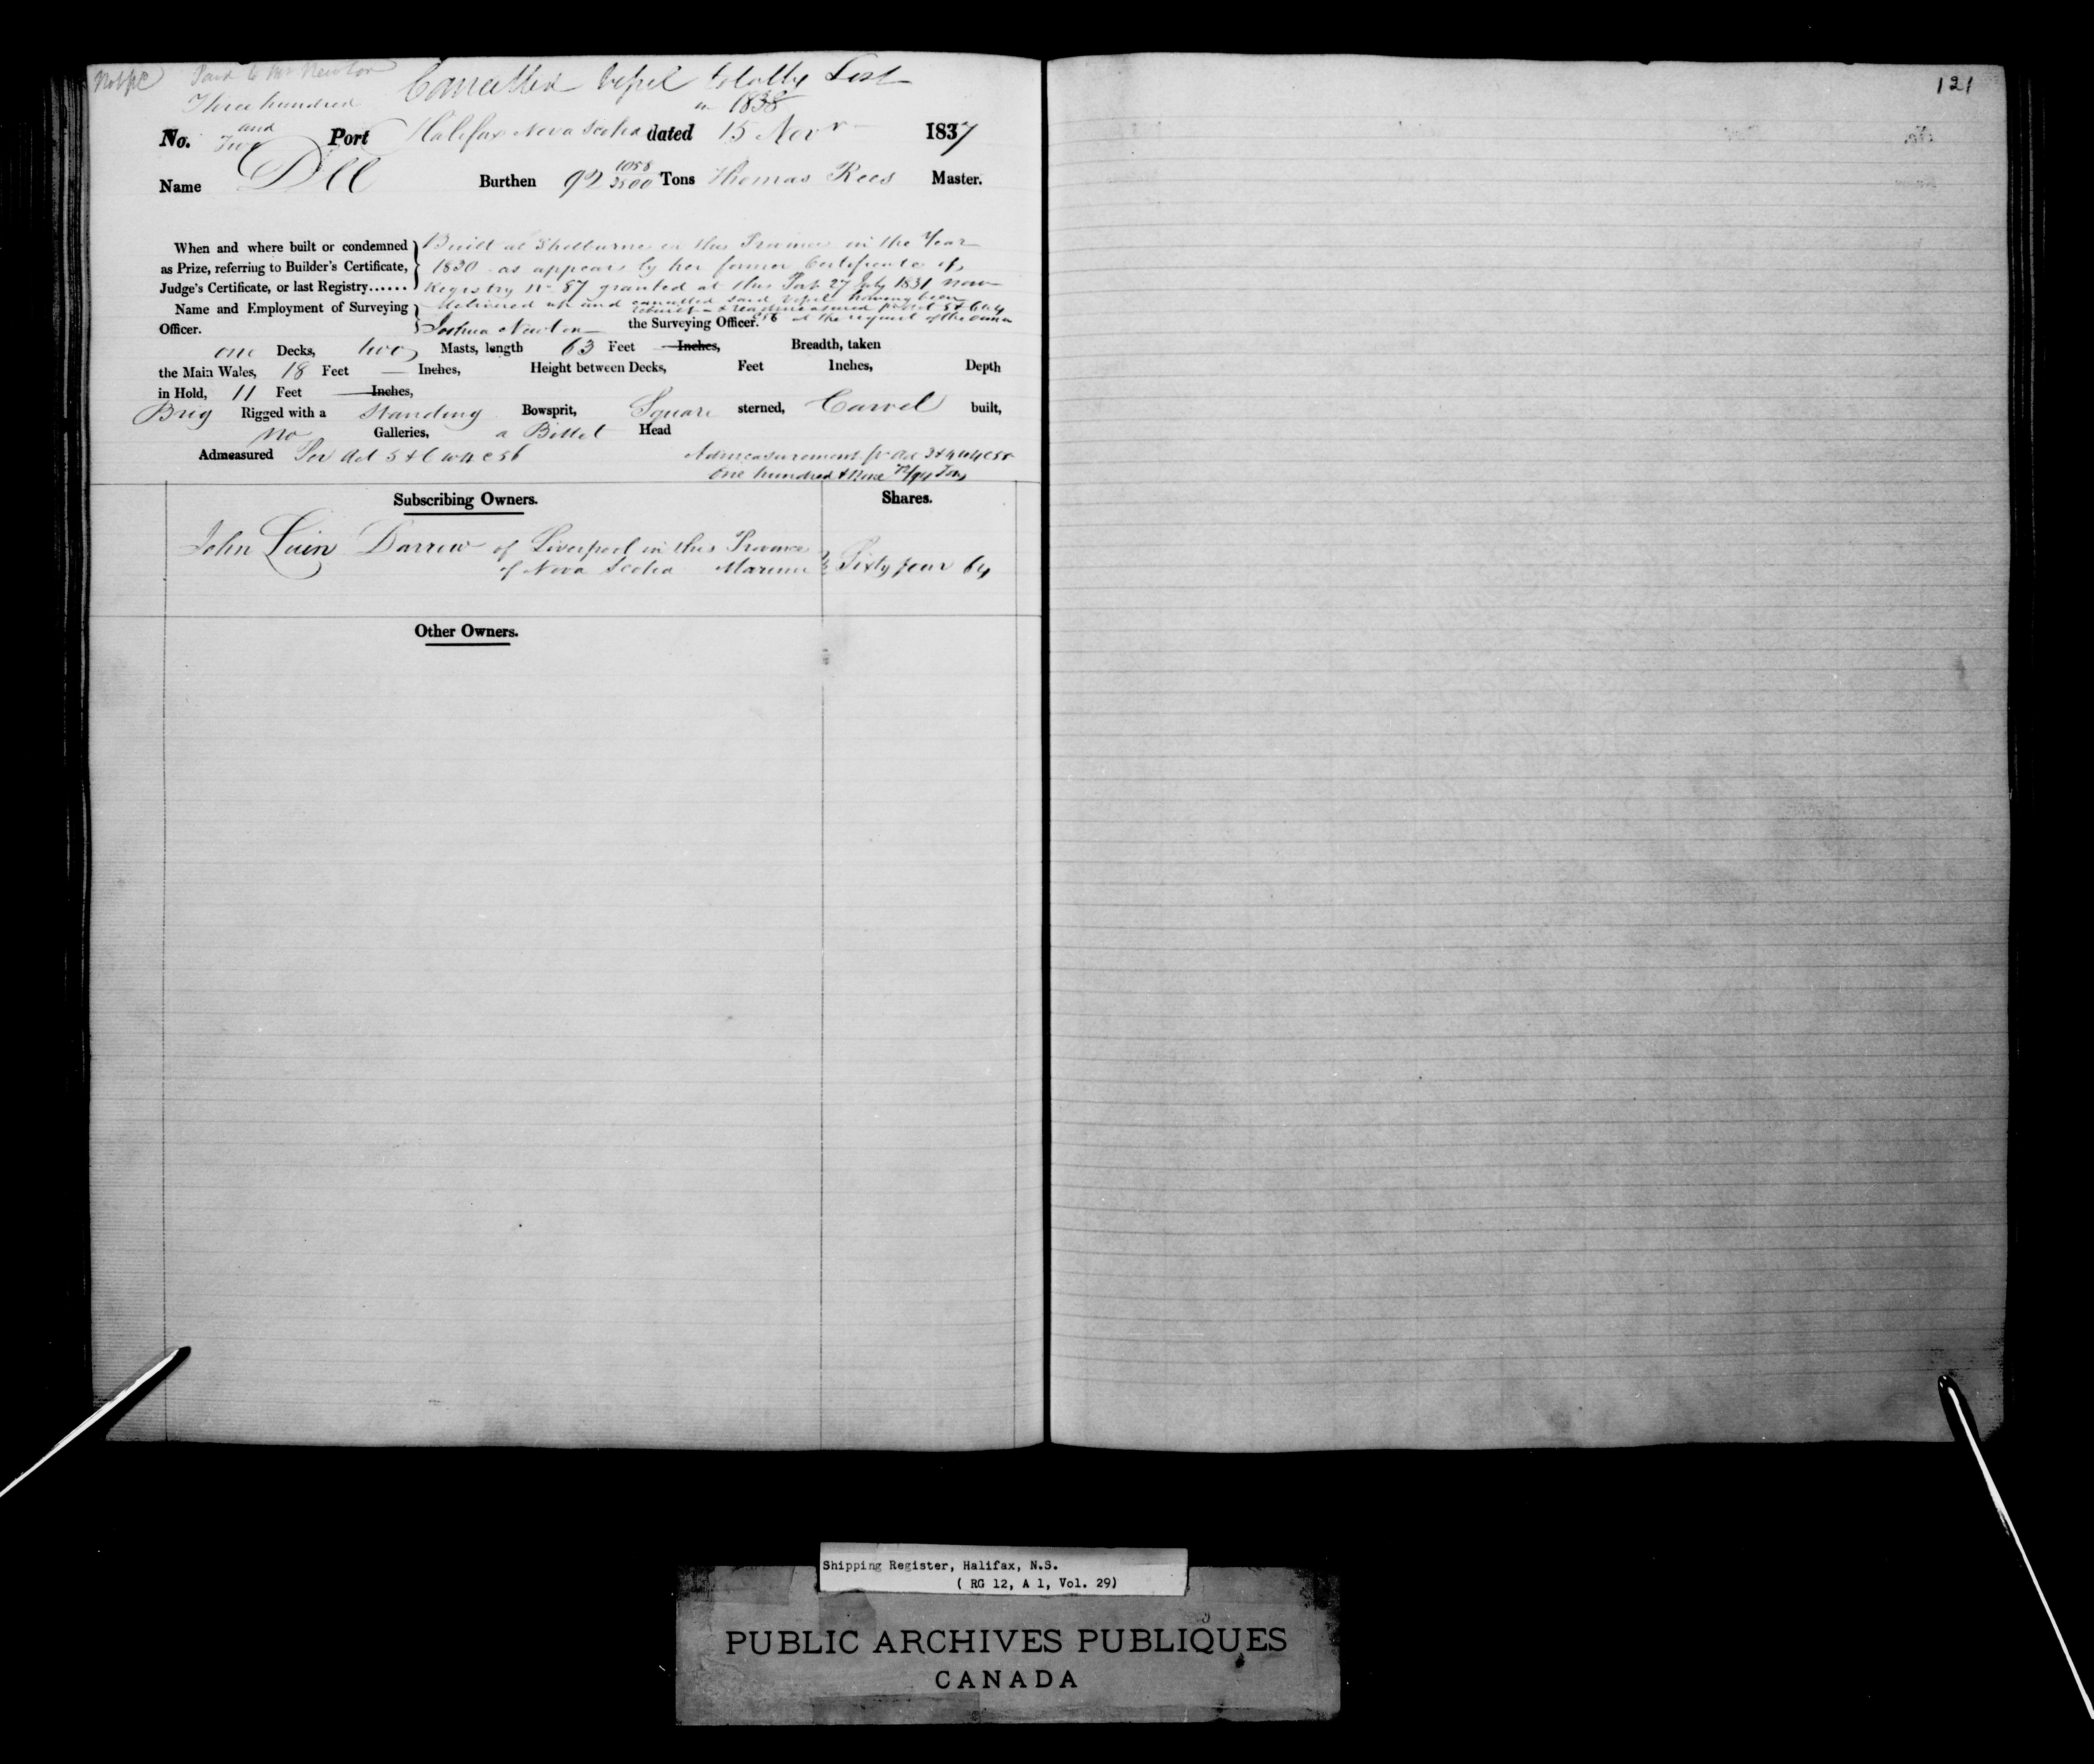 Paid to Mr Newton
Cancelled Vessel totally Lost
in 1838
Three hundred
and
No. Two Port Halifax Nova Scotia dated 15 Novr 1837
Name Dee Burthen 92 1058/3500 Tons Thomas Rees Master.
When and where built or condemned Built at Shelburne in this Province in the Year
as Prize, referring to Builder's Certificate, 1830 as appears by her former Certificate of
Judge's Certificate, or last Registry...... Registry No 87 granted at this Port 27 July 1831 now
Name and Employment of Surveying delivered up and cancelled said Vessel having been
Officer. Joshua Newton the Surveying Officer. C56 at the request of the owner
rebuilt & readmeasured 5 & 6 W4
one Decks, two Masts, length 63 Feet Inches, Breadth, taken
the Main Wales, 18 Feet — Inches, Height between Decks, Feet Inches, Depth
in Hold, 11 Feet Inches,
Brig Rigged with a Standing Bowsprit, Square sterned, Carvel built,
no Galleries, a Billet Head
Admeasured Per Act 5 & 6 W4 C56 Admeasurement pr Act 3 & 4 W4 C55
One hundred & Nine /94 Tons
Subscribing Owners. Shares.
John Darrow of Liverpool in this Province
of Nova Scotia Mariner Sixty four 64
Other Owners.
121
Shipping Register, Halifax, N.S.
( RG 12, A 1, Vol. 29)
PUBLIC ARCHIVES PUBLIQUES
CANADA